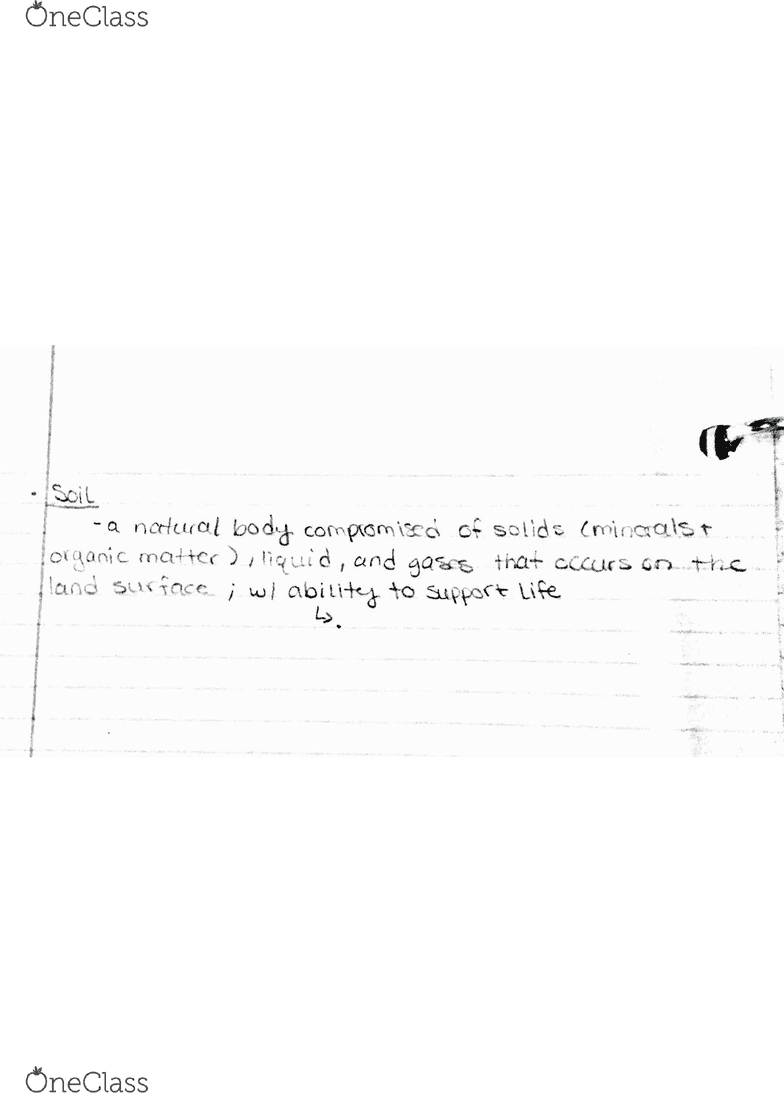 OneClass
• Soil
- a natural body compromised of solids (minerals +
organic matter), liquid, and gases that occurs on the
land surface; w/ ability to support life
↳.
OneClass